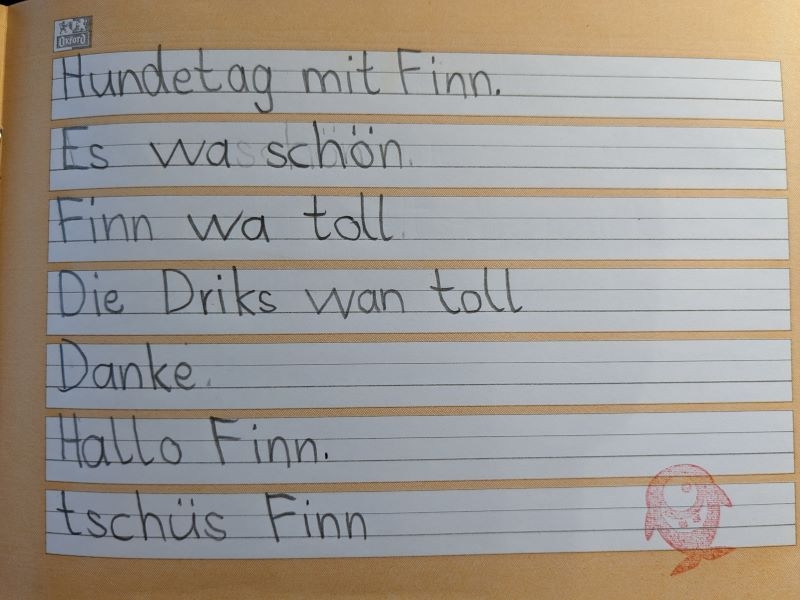 Oxford
Hundetag mit Finn.
Es wa schön.
Finn wa toll
Die Driks wan toll
Danke.
Hallo Finn.
tschüs Finn